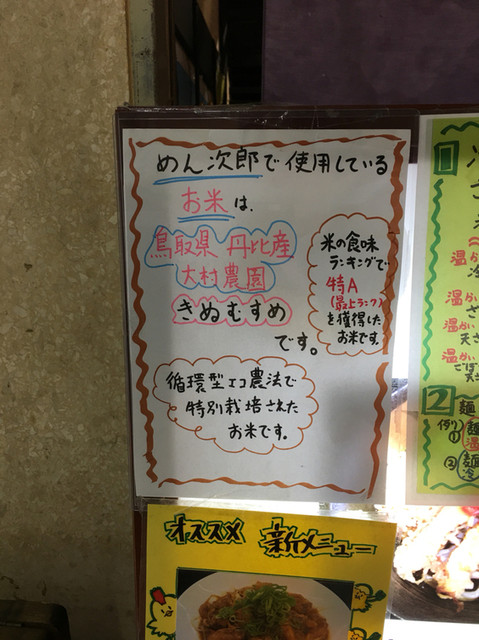 めん次郎で使用している
お米は、
鳥取県 丹比産
大村農園
きぬむすめ
です。
米の食味
ランキングで
特A
(最上ランク)
を獲得した
お米です。
循環型エコ農法で
特別栽培された
お米です。
オススメ 新メニュー
1
温か
冷
温か
温かい
天ざ
温かい
ごぼ
天ざ
2 麺
①
②
冷